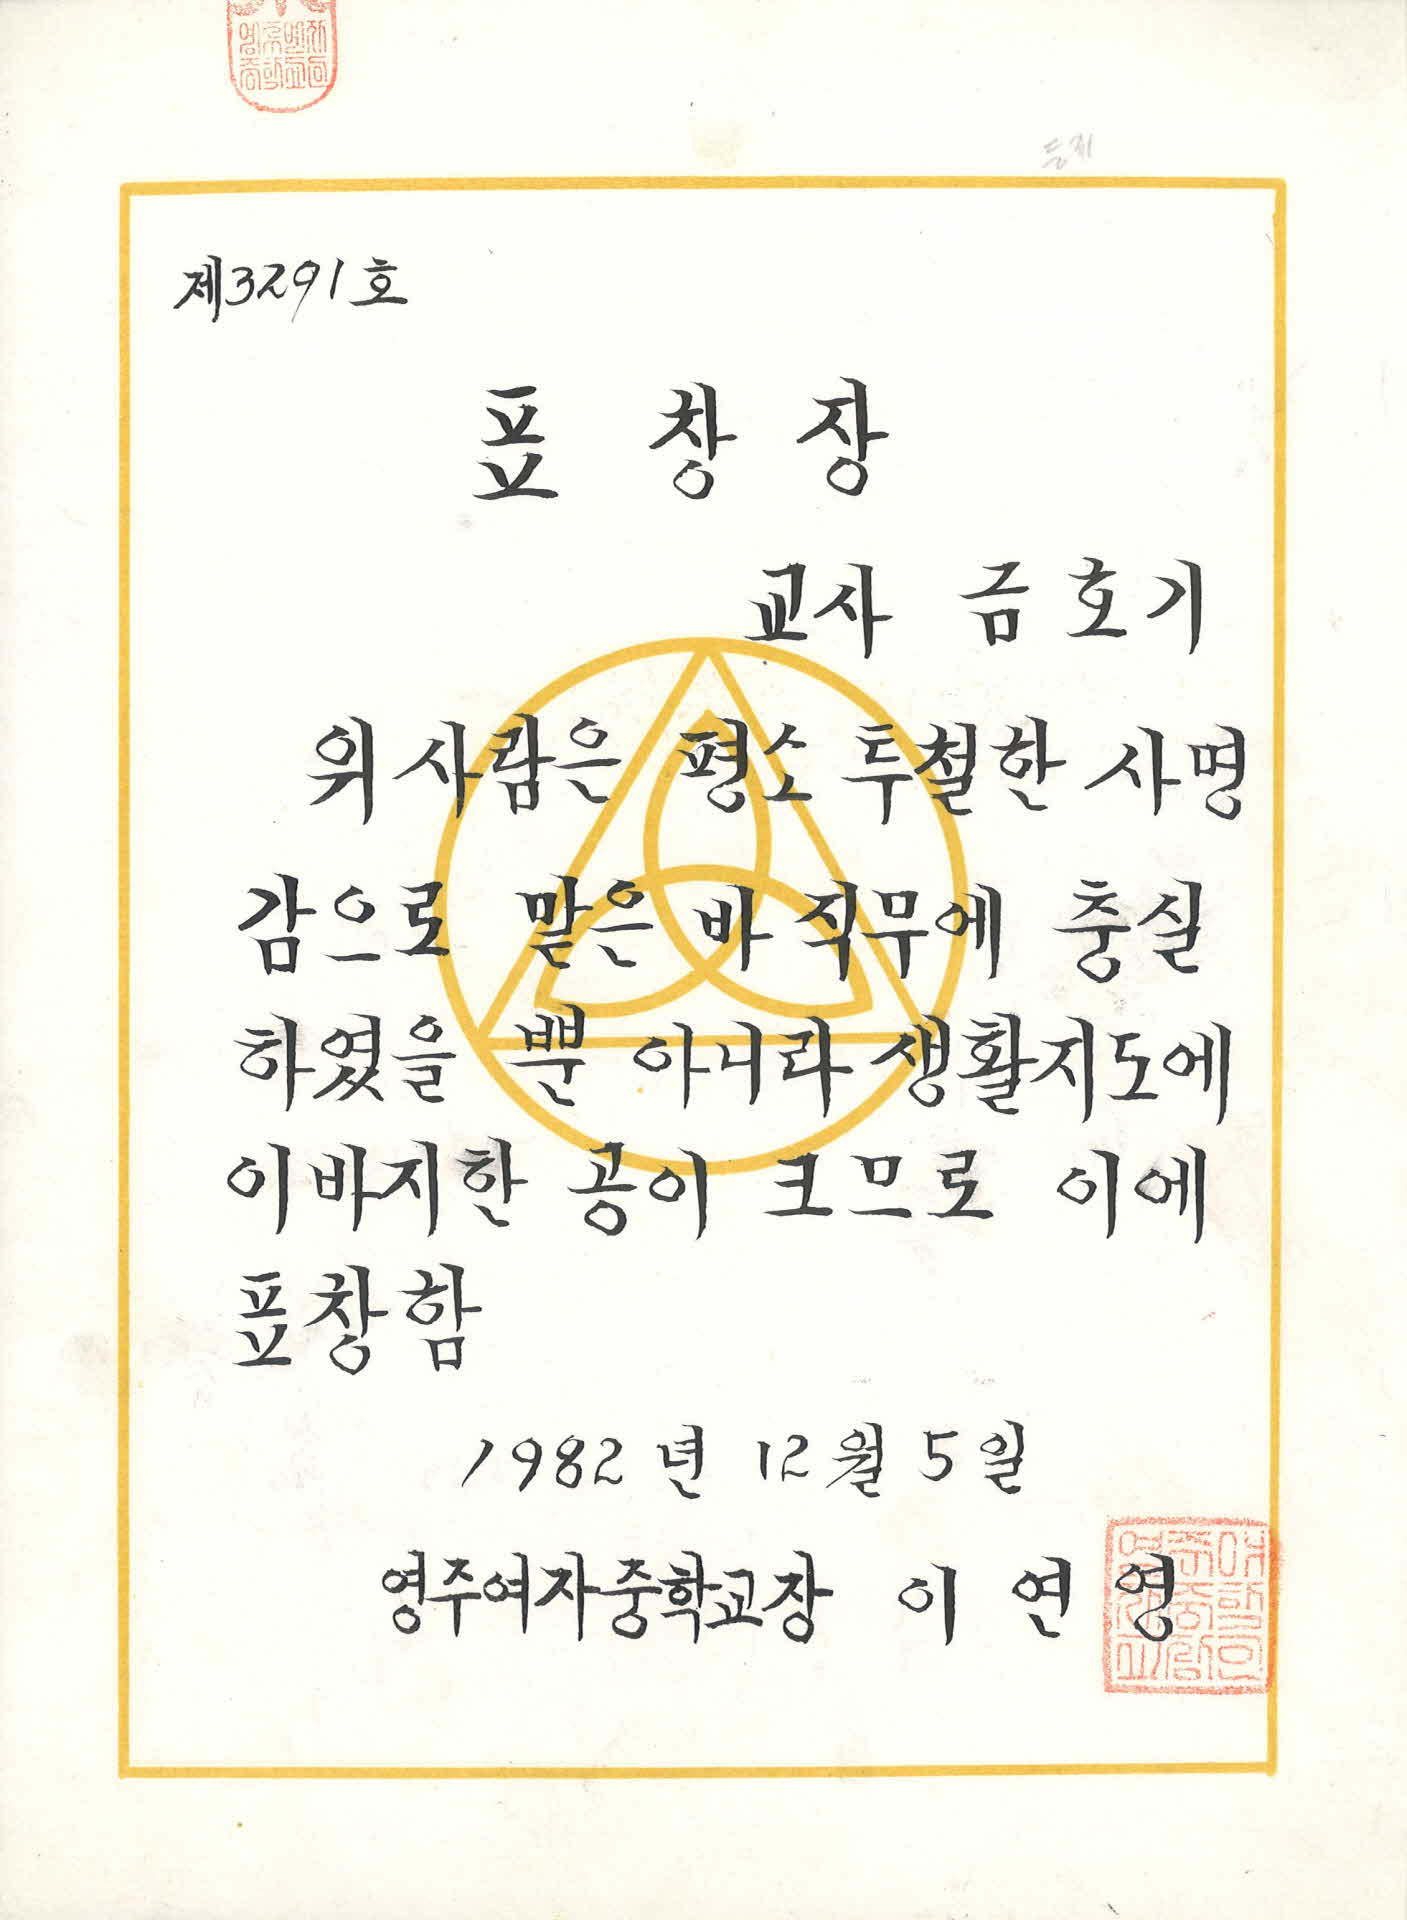 제3291호
표 창 장
교사 금 호 기
위 사람은 평소 투철한 사명
감으로 맡은 바 직무에 충실
하였을 뿐 아니라 생활지도에
이바지한 공이 크므로 이에
표창함
1982년 12월 5일
영주여자중학교장 이 연 영